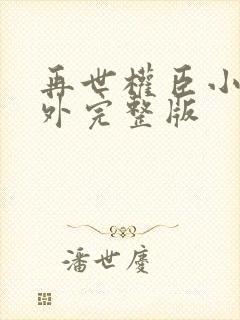 再世權臣小
外完整版
潘世慶